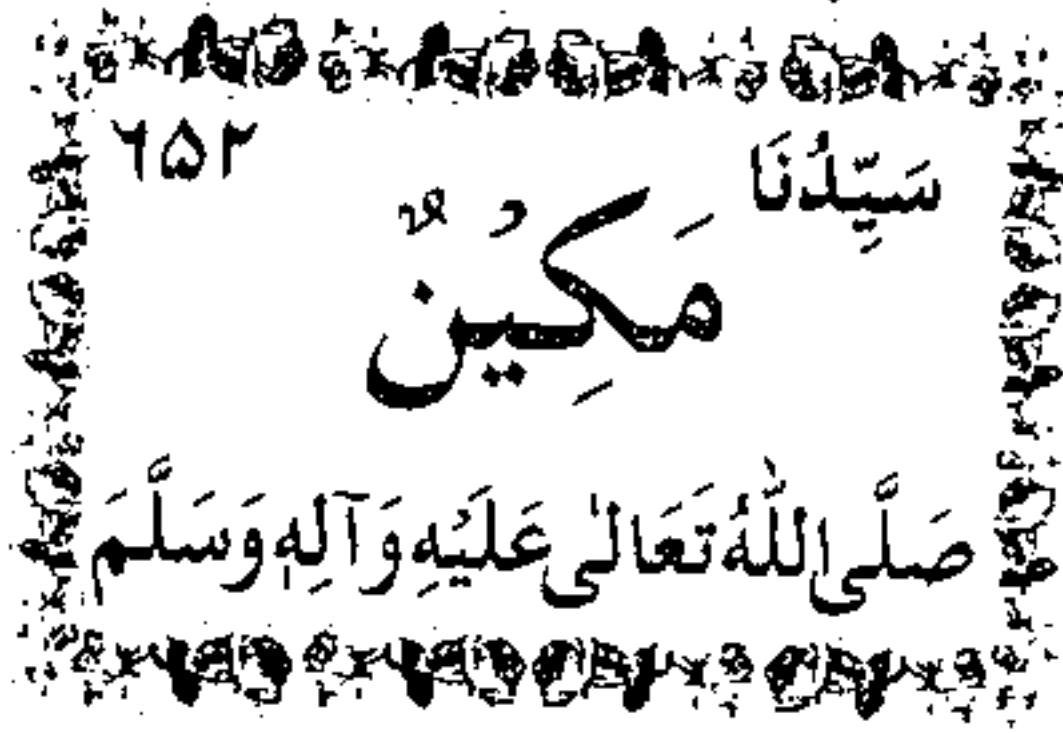 سَيِّدُنَا ٦٥٢
مَكِيْنٌ
صَلَّى اللّٰهُ تَعَالٰى عَلَيْهِ وَآلِهٖ وَسَلَّمَ